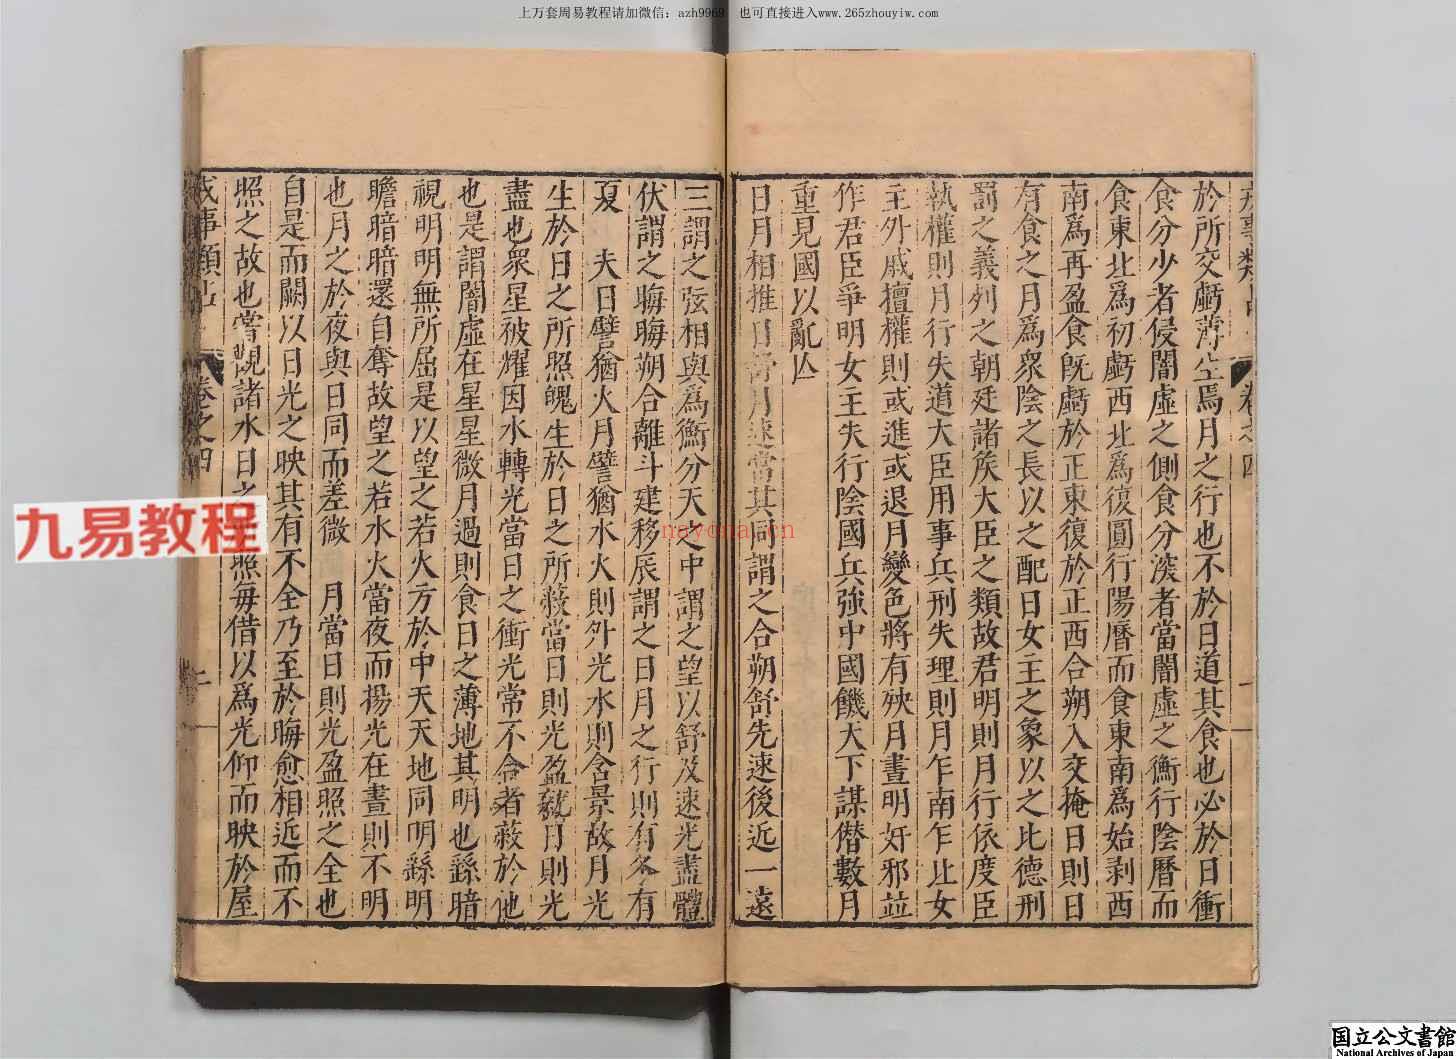 上万套周易教程请加微信：azh9969　也可直接进入www.265zhouyiw.com
於所交虧薄生焉月之行也不於日道其食也必於日衝
食分少者侵闇虛之側食分深者當闇虛之衝行陰曆而
食東北爲初虧西北爲復圓行陽曆而食東南爲始剥西
南爲再盈食旣虧於正東復於正西合朔入交掩日則日
有食之月爲衆陰之長以之配日女主之象以之比德刑
罰之義列之朝廷諸矦大臣之類故君明則月行依度臣
執權則月行失道大臣用事兵刑失理則月乍南乍北女
主外戚擅權則或進或退月變色將有殃月晝明奸邪並
作君臣爭明女主失行陰國兵強中國饑天下謀僭數月
重見國以亂亾
日月相推日舒月速當其同謂之合朔舒先速後近一遠
三謂之弦相與爲衡分天之中謂之望以舒及速光盡體
伏謂之晦晦朔合離斗建移辰謂之日月之行則有冬有
夏　夫日譬猶火月譬猶水火則外光水則含景故月光
生於日之所照魄生於日之所蔽當日則光盈就日則光
盡也衆星彼耀因水轉光當日之衝光常不合者蔽於他
也是謂闇虛在星星微月過則食日之薄地其明也繇暗
視明明無所屈是以望之若火方於中天天地同明繇明
瞻暗暗還自奪故望之若水火當夜而揚光在晝則不明
也月之於夜與日同而差微　月當日則光盈照之全也
自是而闕以日光之映其有不全乃至於晦愈相近而不
照之故也嘗觀諸水日之 照毎借以爲光仰而映於屋
卷之四
二
九易教程
nayona.cn
国立公文書館
National Archives of Japan